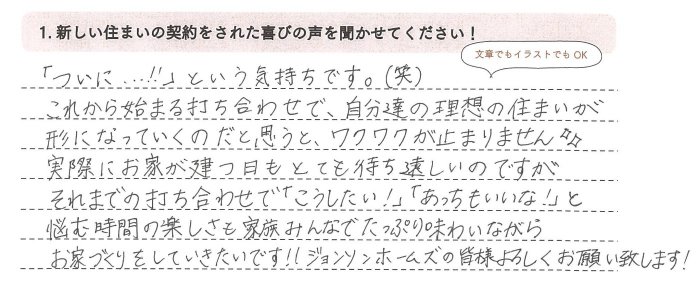 1. 新しい住まいの契約をされた喜びの声を聞かせてください！
文章でもイラストでも OK
「ついに…!!」という気持ちです。(笑)
これから始まる打ち合わせで、自分達の理想の住まいが
形になっていくのだと思うと、ワクワクが止まりません☆☆
実際にお家が建つ日もとても待ち遠しいのですが
それまでの打ち合わせで「こうしたい!」「あっちもいいな!」と
悩む時間の楽しさも家族みんなでたっぷり味わいながら
お家づくりをしていきたいです!! ジョンソンホームズの皆様よろしくお願い致します!